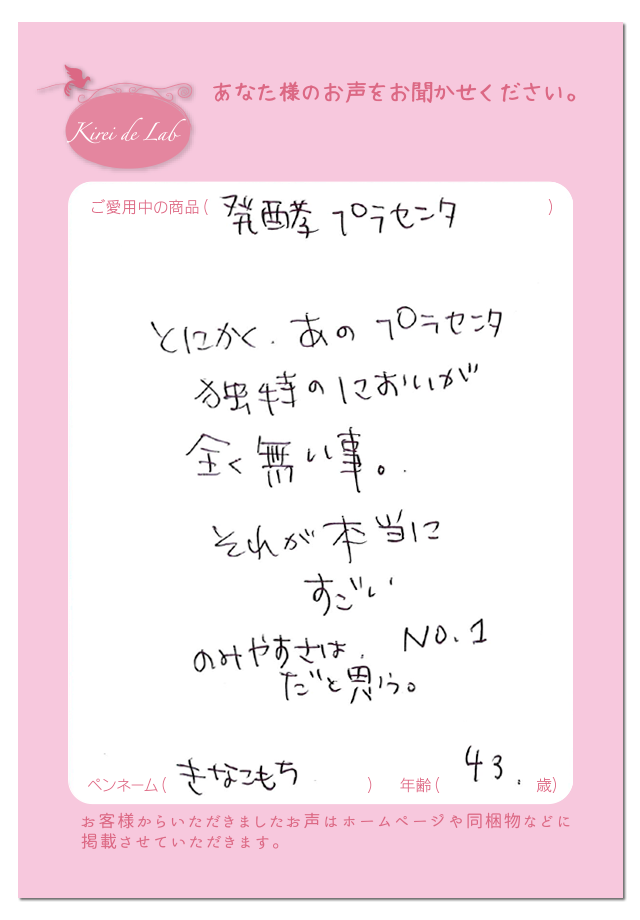 あなた様のお声をお聞かせください。
Kirei de Lab
ご愛用中の商品( 発酵 プラセンタ )
とにかく、あの プラセンタ
独特のにおいが
全く無い事。
それが本当に
すごい
のみやすさは、NO.1
だと思う。
ペンネーム( きなこもち ) 年齢( 43. 歳)
お客様からいただきましたお声はホームページや同梱物などに
掲載させていただきます。